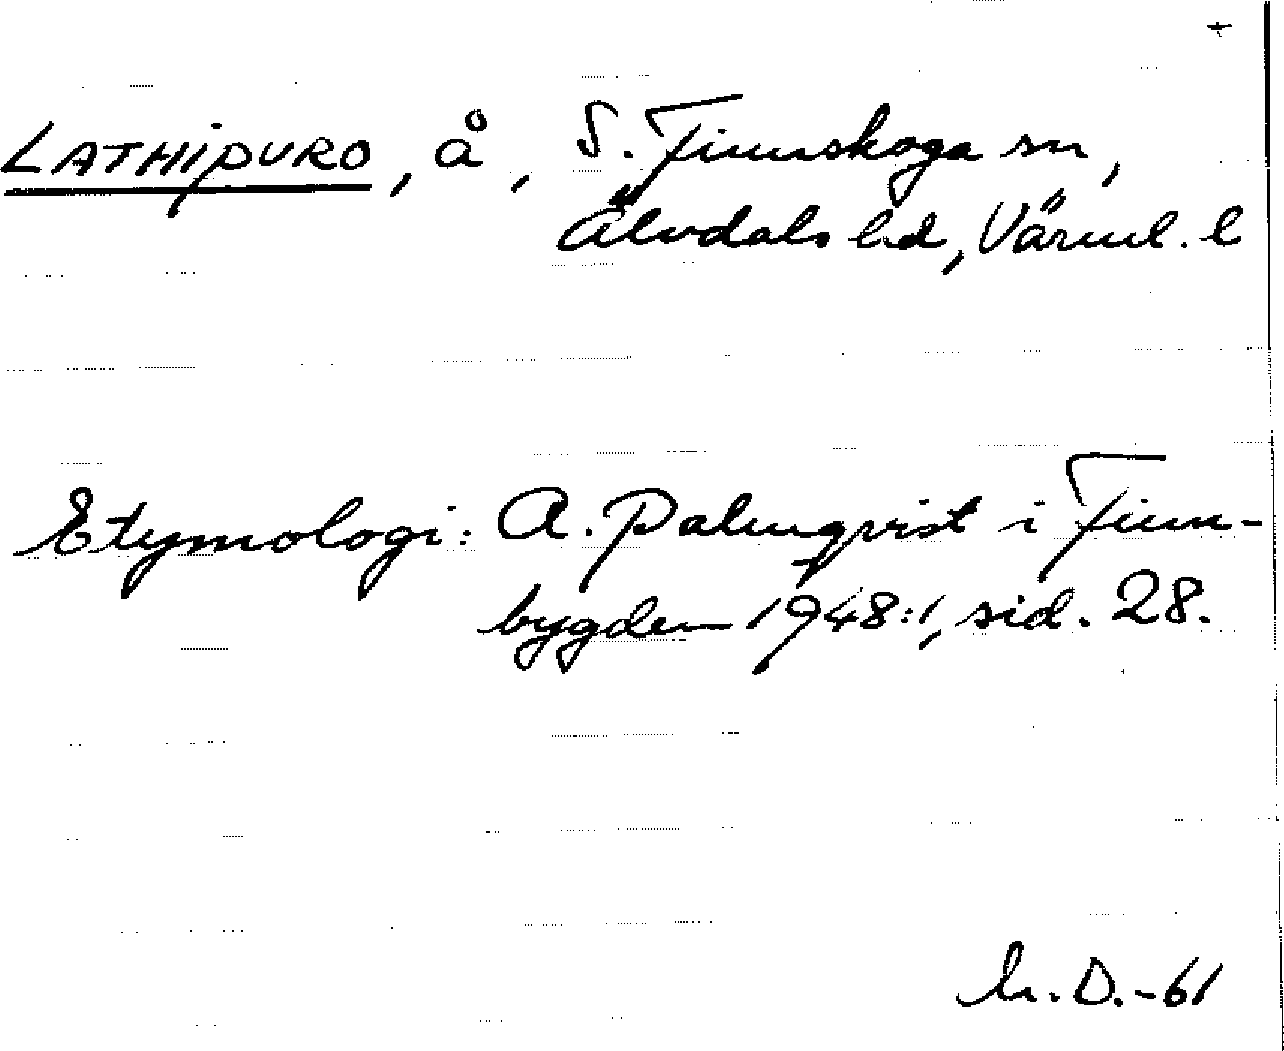 LATHIPURO, å, S. Finnskoga sn,
Älvdals hd, Värml. l
Etymologi: A. Palmqvist i Finn-
bygden 1948:1, sid. 28.
D.-61